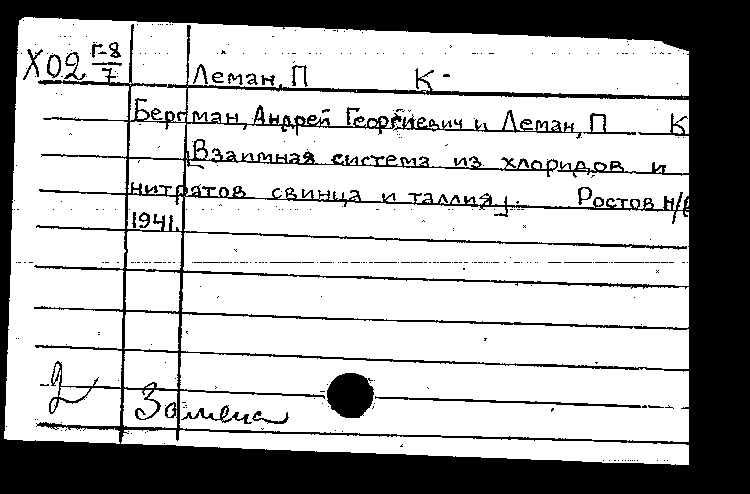 Х02 Г-8/7 Леман, П К-
Бергман, Андрей Георгиевич и Леман, П К
[Взаимная система из хлоридов и
нитратов свинца и таллия]. Ростов н/
1941.
2 Замена